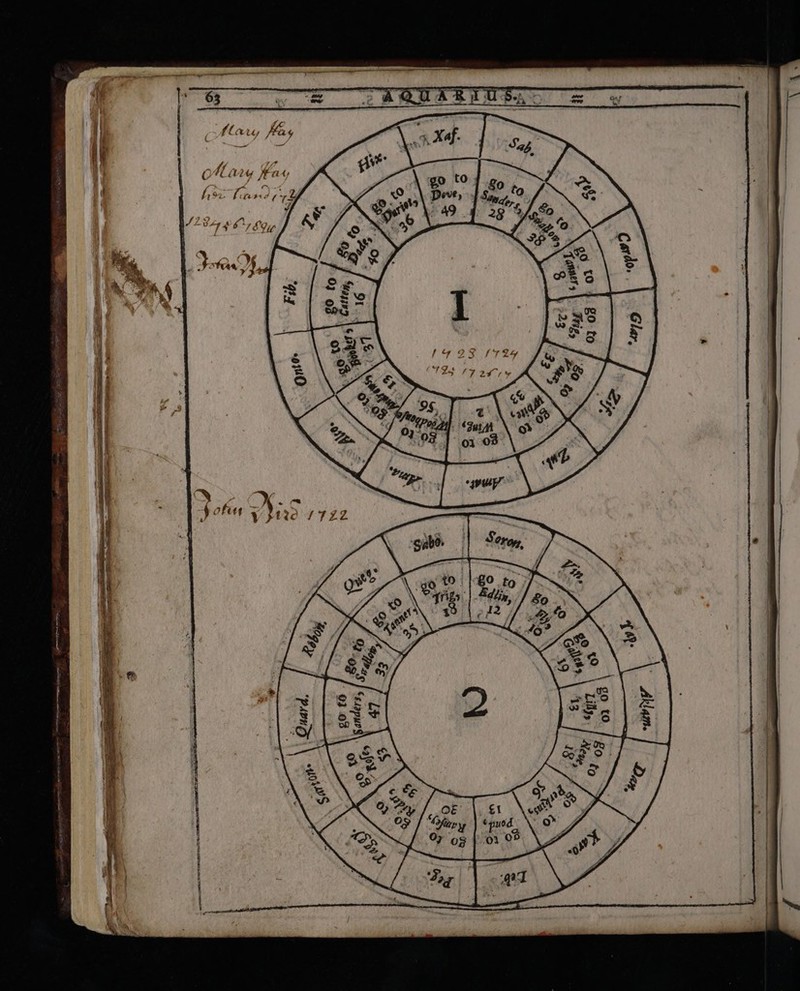 63 AQUARIUS.
Mary Hay
Mary Hay
her hand
John
Xaf. go to Dove, 49
Sab. go to Sanders, 28
Teg. go to Swallow, 38
Cardo. go to Tanner, 8
Glar. go to Trigs 23
Zif. go to 33
Zub. go to White, 33
Amat. go to Wing, 2
Alma. go to Woodhouse, 56
Alto. go to 13
Onto. go to Booker, 37
Fib. go to Catten, 16
Tar. go to Dade, 40
Hix. go to Dariet, 36
I
1723 1724
John Bird 1722
Sabo. go to Trigs 18
Soron. go to Edlin, 12
Vin. go to Fly, 10
Tap. go to Gallen, 19
Aklam. go to Lilly, 13
Dan. go to Neve, 18
Karo. go to Perkins, 56
Leb. go to Pond, 13
Peg. go to Ramsey, 30
Tassy. go to Rider, 33
Sarion. go to Rose, 53
Quard. go to Sanders, 47
Rebon. go to Swallow, 33
Queg. go to Tanner, 35
2